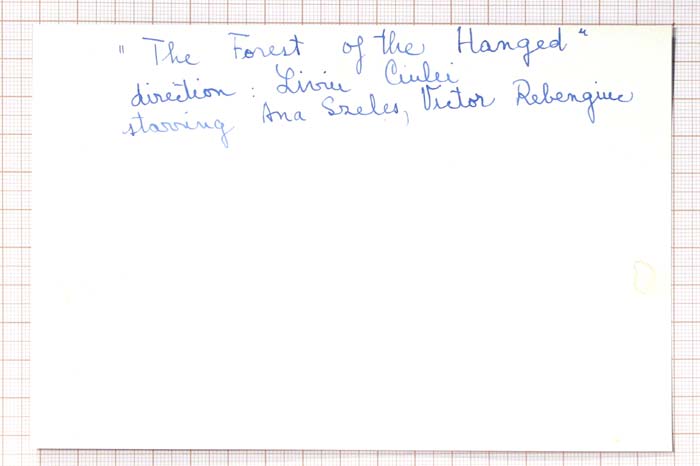 "The Forest of the Hanged"
direction: Liviu Ciulei
starring Ana Szeles, Victor Rebengiuc